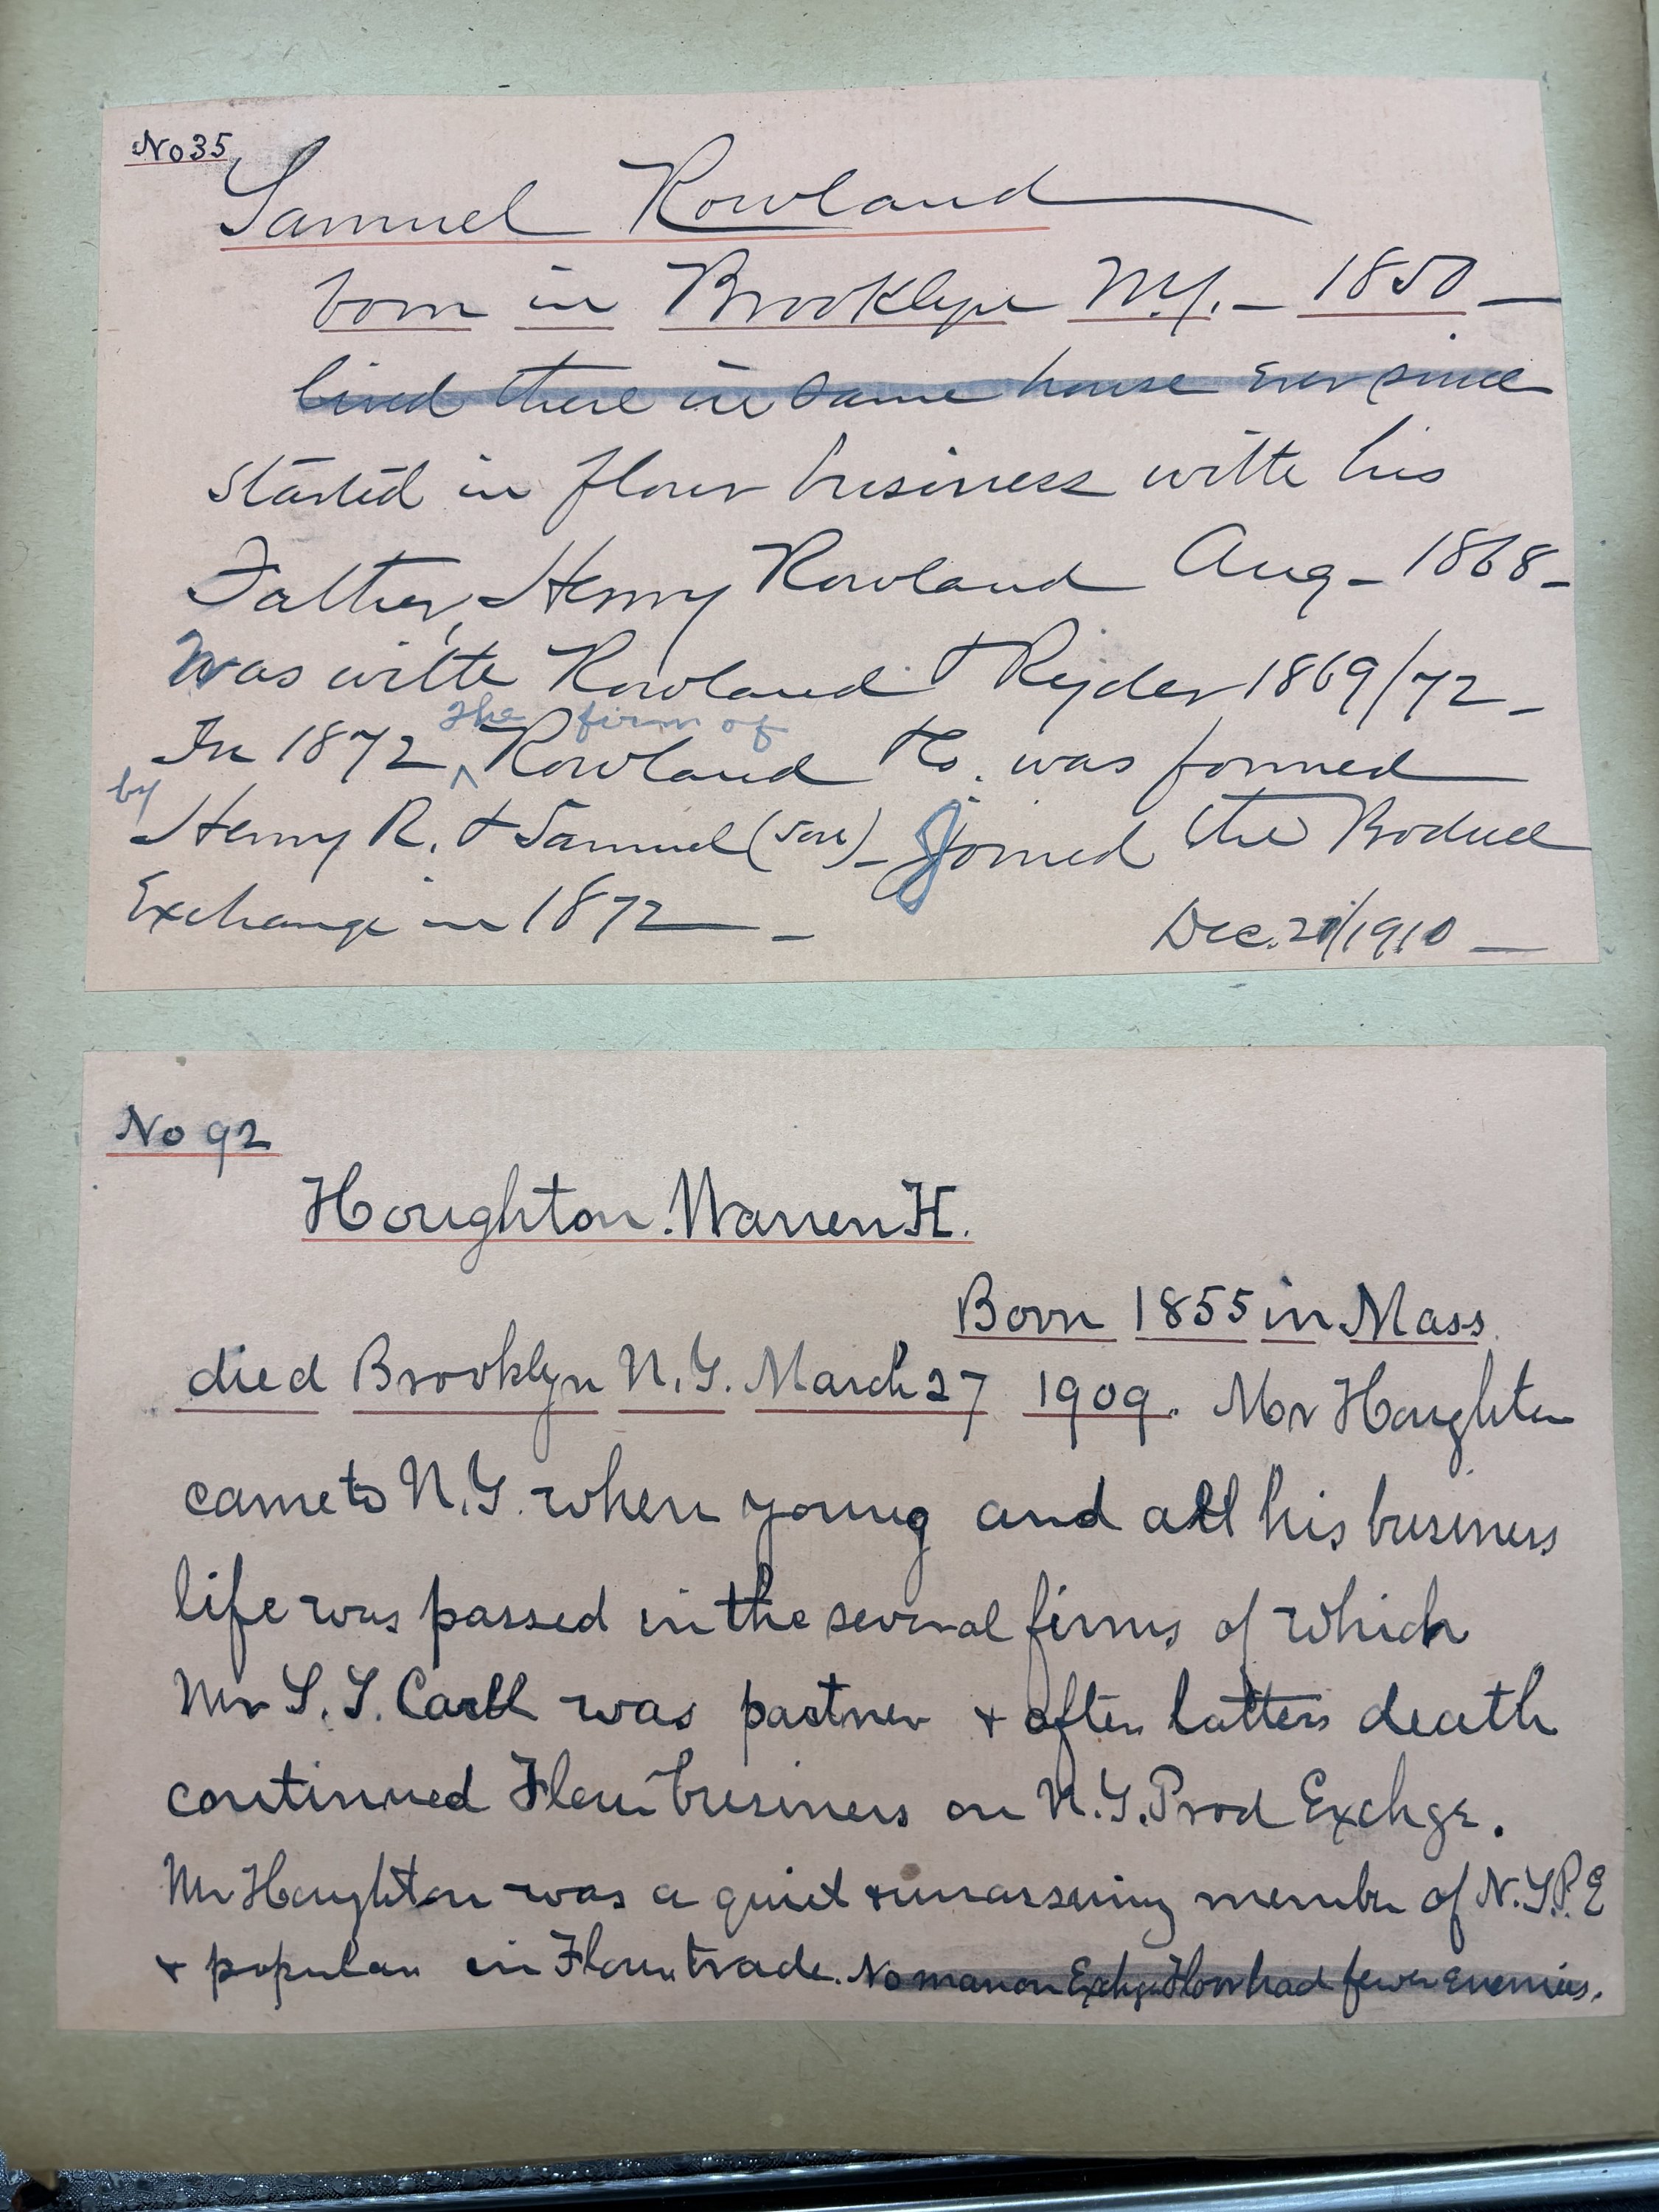 No 35
Samuel Rowland
born in Brooklyn N.Y. — 1850 —
lived there in same house ever since
started in flour business with his
Father, Henry Rowland Aug — 1868 —
Was with Rowland & Ryder 1869/72 —
the firm of
In 1872 Rowland & Co. was formed
by
Henry R. & Samuel (son) — Joined the Produce
Exchange in 1872 — —
Dec. 21/1910 —
No 92
Houghton. Warren H.
Born 1855 in Mass.
died Brooklyn N.Y. March 27 1909. Mr Houghton
came to N.Y. when young and all his business
life was passed in the several firms of which
Mr S. S. Carll was partner & after latters death
continued Flour business on N.Y. Prod Exchge.
Mr Houghton was a quiet & unassuming member of N.Y.P.E
& popular in Flour trade. No man on Exchge Floor had fewer enemies.